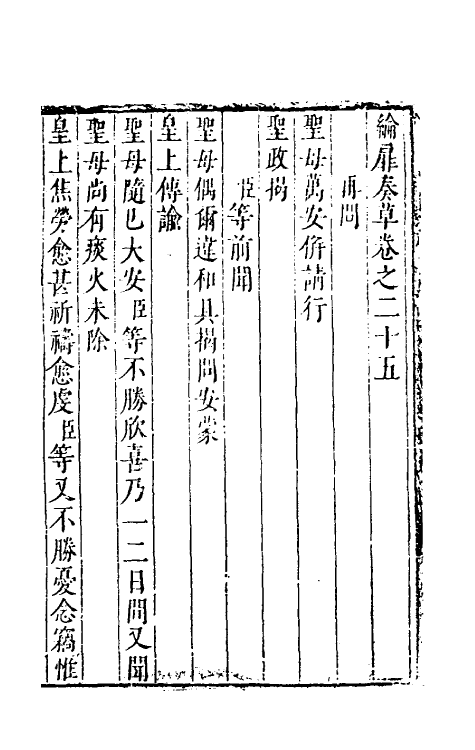 綸扉奏草卷之二十五
再問
聖母萬安併請行
聖政揭
臣等前聞
聖母偶爾違和具揭問安蒙
皇上傳諭
聖母隨已大安臣等不勝欣喜乃一二日間又聞
聖母尚有痰火未除
皇上焦勞愈甚祈禱愈虔臣等又不勝憂念竊惟